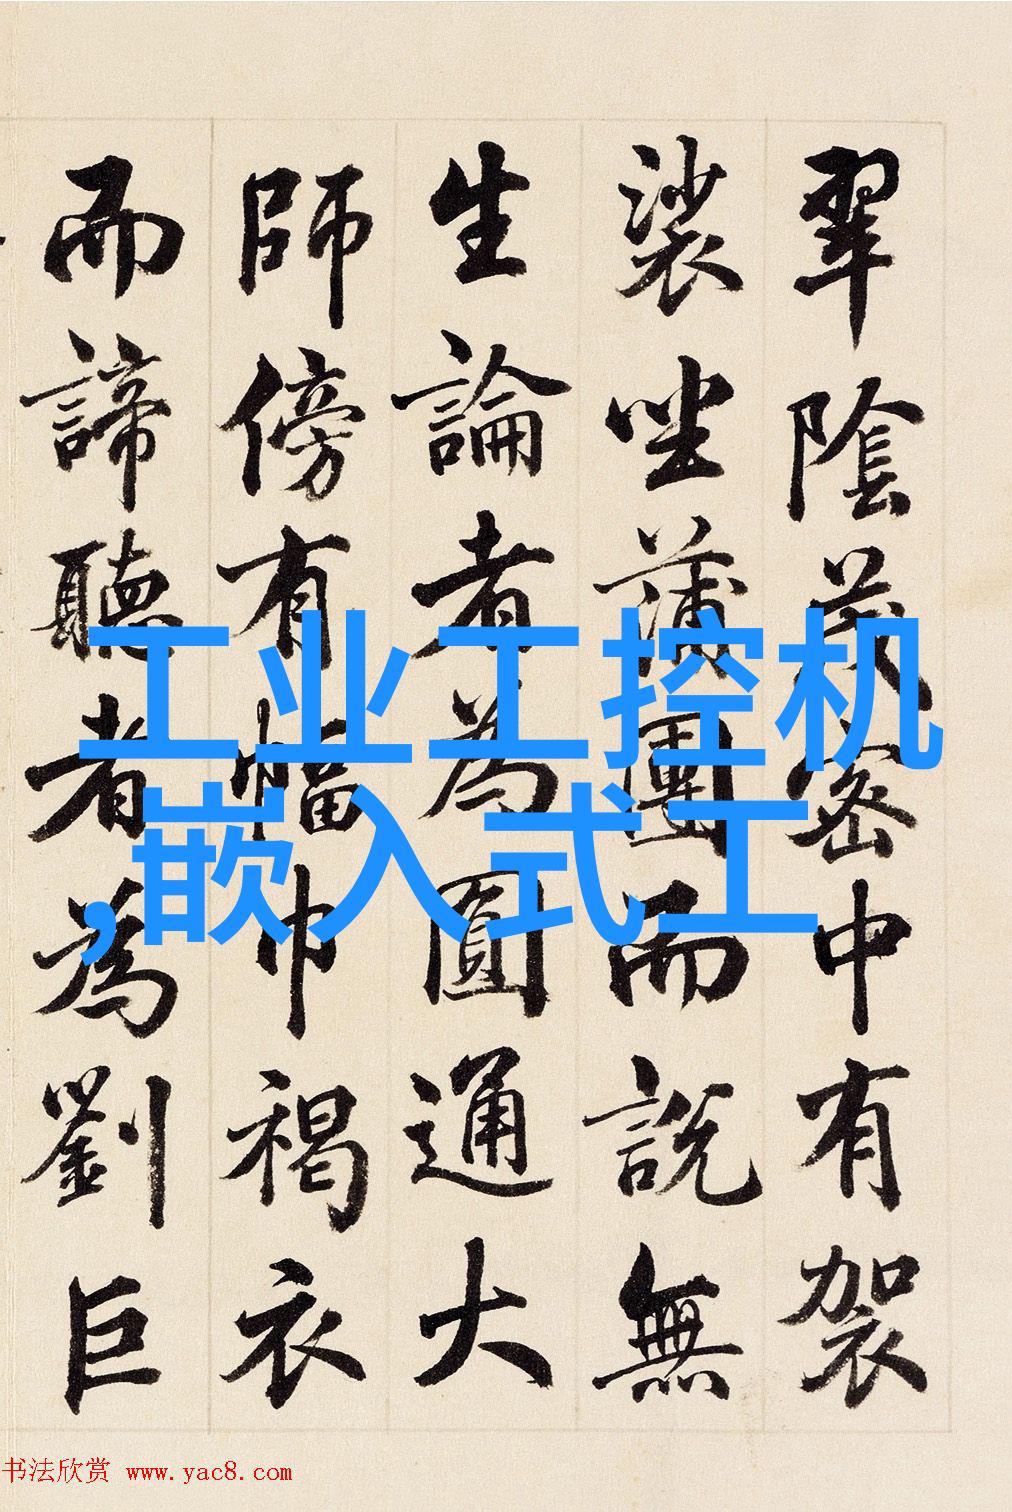 翠陰茂密中有袈
裟坐蒲團而說無
生論者為圓通大
師傍有幅巾褐衣
而諦聽者為劉巨
工业工控机
,嵌入式工
书法欣赏 www.yac8.com